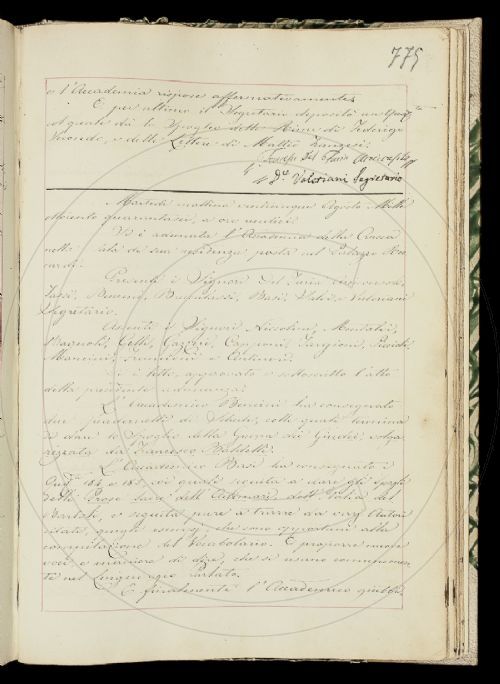 775
e l'Accademia rispose affermativamente.
E per ultimo il Segretario depositò un
col quale dà lo Spoglio delle Rime di Federigo
e delle Lettere di Matteo Franzesi.
Del Furia Arciconsolo
Valeriani Segretario
Martedì mattina venticinque Agosto Mille
ottocento quarantasei, a ore undici.
Si è adunata l'Accademia della Crusca
nella sala di sua residenza posta nel Palazzo Ric
cardi.
Presenti i Signori Del Furia Arciconsolo,
Bencini, Becchi, Basi, e Valeriani
Segretario.
Assenti i Signori Niccolini, Montalvi,
Bagnoli, Gelli, Cazzini, Capponi, Targioni,
Mancini, e Centini.
Si è letto, approvato e sottoscritto l'atto
della precedente adunanza.
L'Accademico Bencini ha consegnato
due quadernetti di Schede, colle quali termina
di dare lo Spoglio della Guerra dei Giudei, volga
rizzata da Francesco Baldelli.
L'Accademico Basi ha consegnato i
Quad. 184 e 185 coi quali seguita a dare gli Spogli
delle Prose Sacre dell'
e seguita pure a trarre da varj Autori
citati, quegli esempj, che sono opportuni alla
compilazione del Vocabolario. E propone nuove
voci, e maniere di dire, che si usano comunemen
te nel linguaggio parlato.
E finalmente l'Accademico